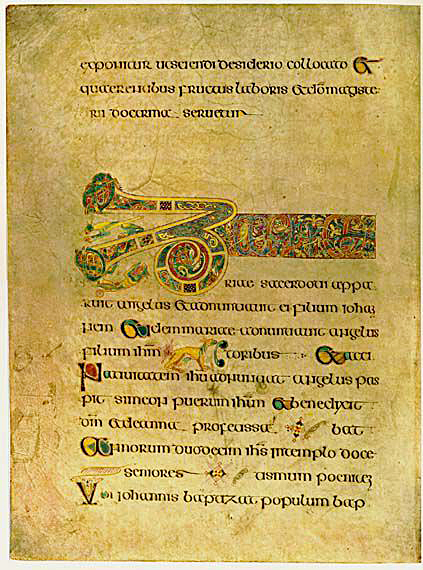 exponitur ut sciendi desiderio collocato et
quaerentibus fructus laboris et dõ magiste
rii doctrina servetur
Zacha
riae sacerdoti appa
ruit angelus et adnuntiavit ei filium iohan
nem et elem mariae adnuntiavit angelus
filium ihm toribus et acci
Nativitatem ihu adnuntiat angelus pas
pit simeon puerum ihm et benedixit
dm et de anna profetissa bat
Et annorum duodecim ihs in templo doce
seniores tismum poenitē
Vbi iohannis baptizat populum bap